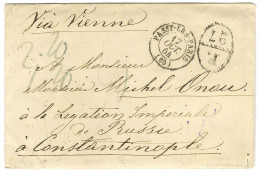 Via Vienne
PASSY-LES-PARIS
17
OCT.
64
(60)
P.D.
À Monsieur
Monsieur Michel Onou
à la Légation Impériale
de Russie
à Constantinople